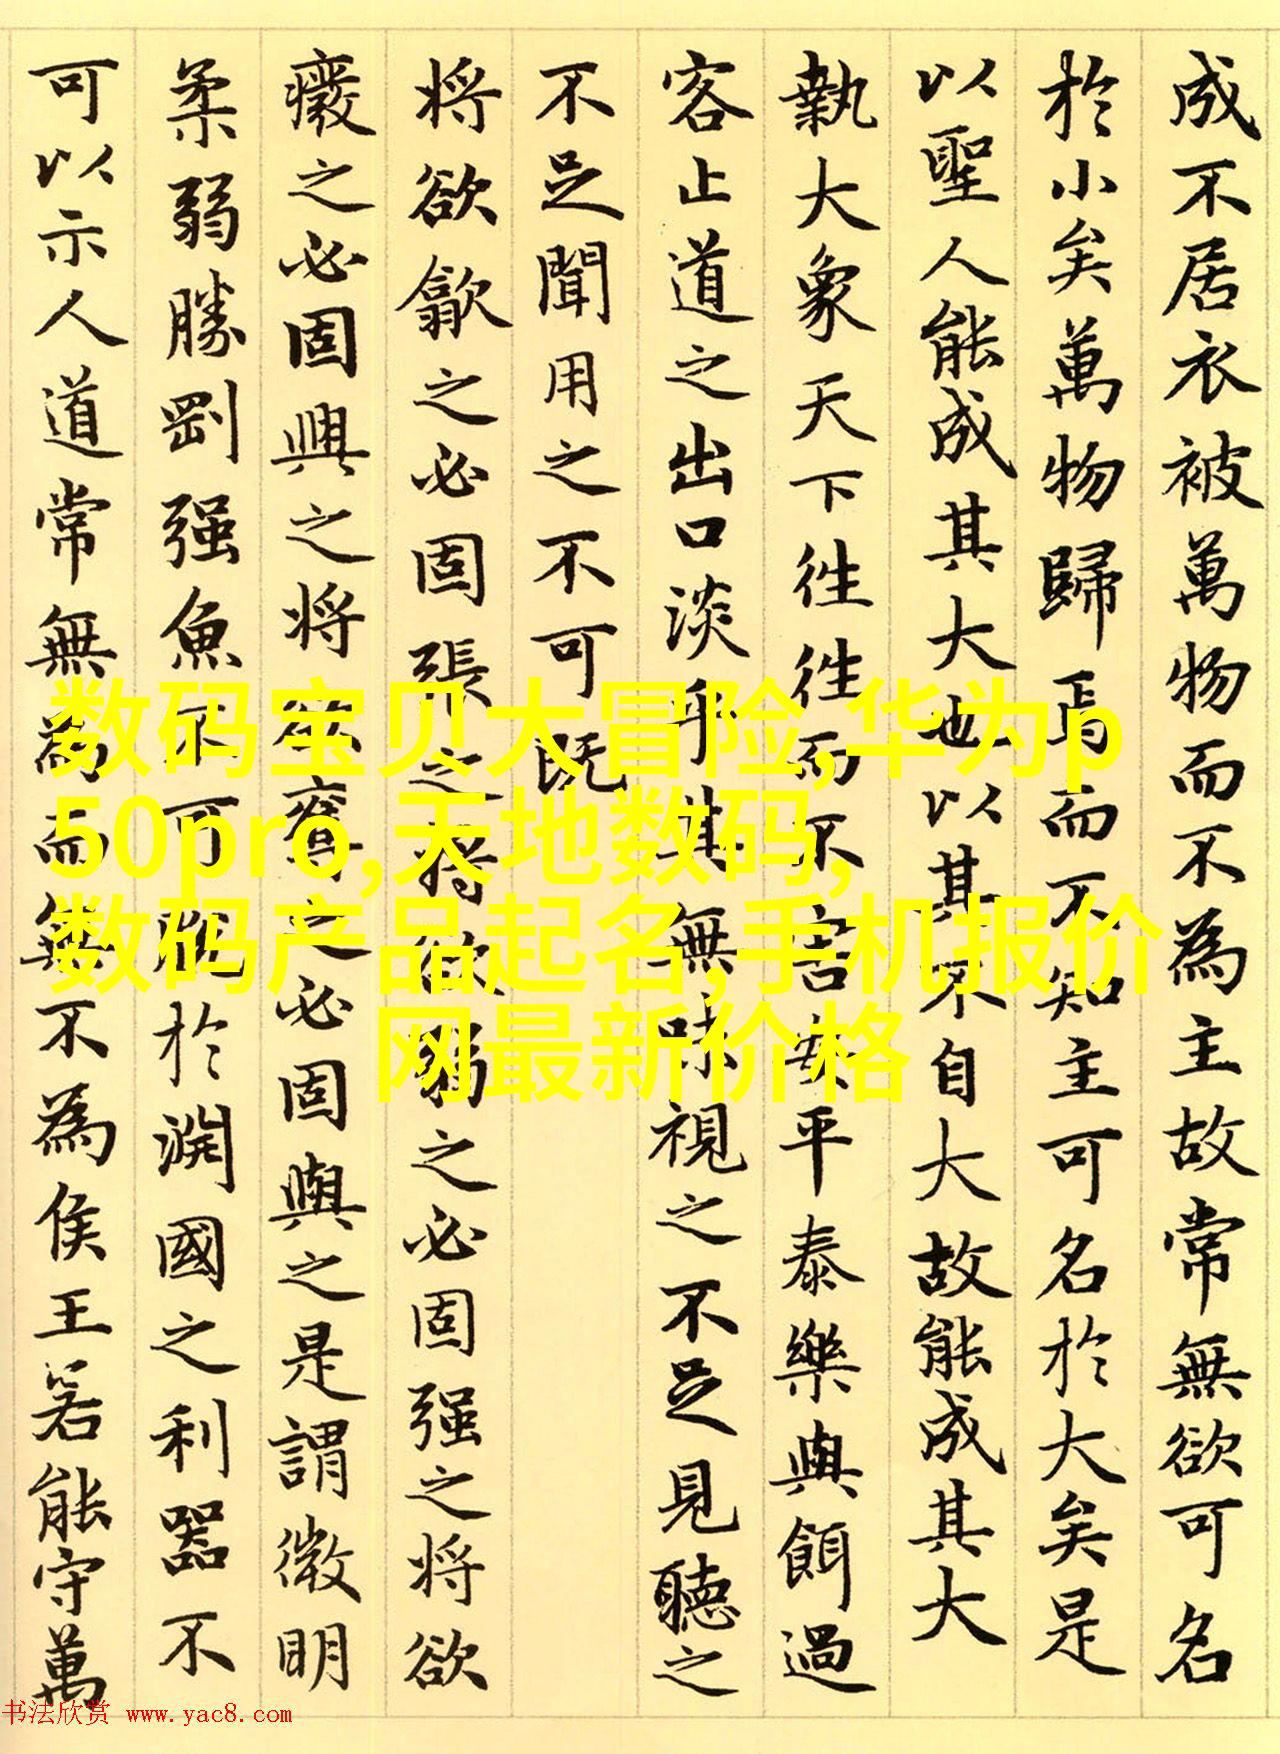 成不居衣被萬物而不為主故常無欲可名
於小矣萬物歸焉而不知主可名於大矣是
以聖人能成其大也以其不自大故能成其大
執大象天下往往而不害安平泰樂與餌過
客止道之出口淡乎其無味視之不足見聽之
不足聞用之不可既
将欲歙之必固張之将欲弱之必固强之将欲
癈之必固興之将欲奪之必固與之是謂微明
柔弱勝剛强魚不可脱於淵國之利器不
可以示人道常無為而無不為侯王若能守萬
数码宝贝大冒险,华为p
50pro,天地数码,
数码产品起名,手机报价
网最新价格
书法欣赏 www.yac8.com